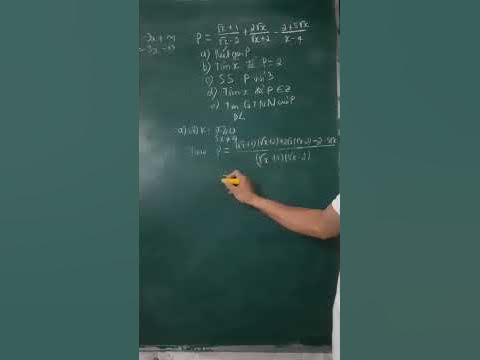 -3x + m
P = \frac{\sqrt{x}+1}{\sqrt{x}-2} + \frac{2\sqrt{x}}{\sqrt{x}+2} - \frac{2+5\sqrt{x}}{x-4}
a) Rút gọn P
b) Tìm x để P = 2
c) SS P với 3
d) Tìm x để P ∈ Z
e) Tìm GTNN của P
a) ĐK: x ≥ 0
x ≠ 4
P = \frac{(\sqrt{x}+1)(\sqrt{x}+2)+2\sqrt{x}(\sqrt{x}-2)-2-5\sqrt{x}}{(\sqrt{x}+2)(\sqrt{x}-2)}